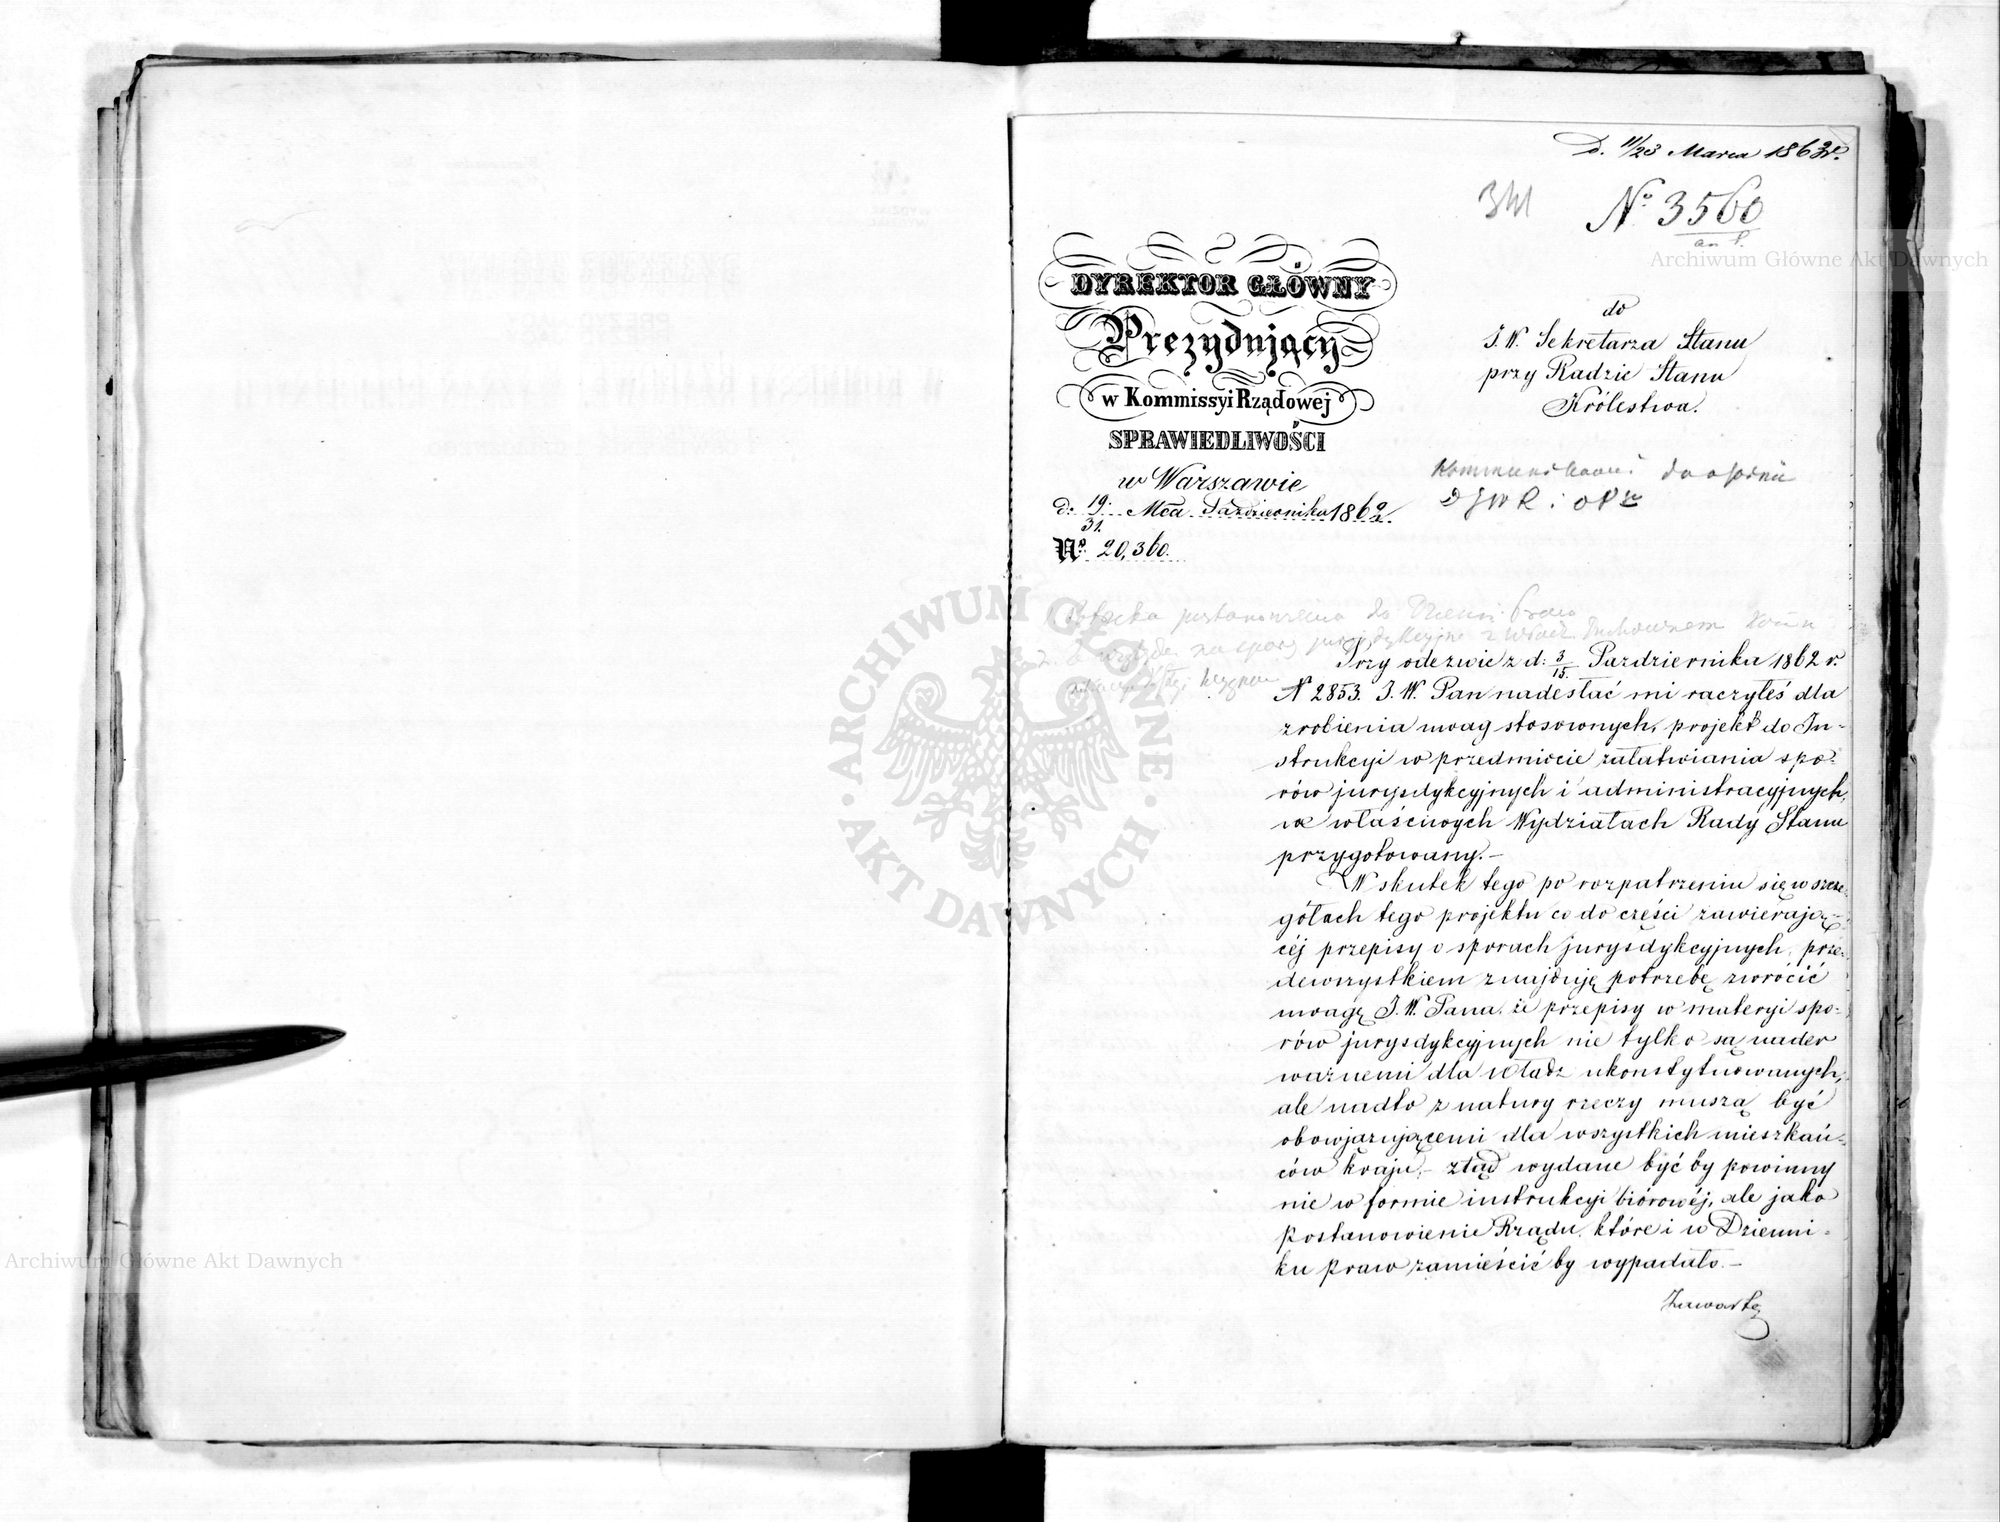 D. 11/23 Marca 1863 r.
341 No 3560
DYREKTOR GŁÓWNY
Prezydujący
w Kommissyi Rządowej
SPRAWIEDLIWOŚCI
w Warszawie
d. 19/31. Mca Października 1862.
No 20,360.
do
J. W. Sekretarza Stanu
przy Radzie Stanu
Królestwa.
Przy odezwie z d: 3/15. Października 1862 r.
N 2853. J. W. Pan nadesłać mi raczyłeś dla
zrobienia uwag stosownych, projekt do In-
strukcyi w przedmiocie załatwiania spo-
rów jurysdykcyjnych i administracyjnych,
we właściwych Wydziałach Rady Stanu
przygotowany.-
W skutek tego po rozpatrzeniu się w szcze-
gółach tego projektu co do części zawierają-
céj przepisy o sporach jurysdykcyjnych, prze-
dewszystkiem znajduję potrzebę zwrócić
uwagę J. W. Pana, że przepisy w materyi spo-
rów jurysdykcyjnych nie tylko są nader
ważnemi dla władz ukonstytuowanych,
ale nadto z natury rzeczy muszą być
obowjązującemi dla wszystkich mieszkań-
ców kraju,- ztąd wydane być by powinny
nie w formie instrukcyi biórowéj, ale jako
postanowienie Rządu, które i w Dzienni-
ku praw zamieścić by wypadało.-
Zawarte
Archiwum Główne Akt Dawnych
ARCHIWUM GŁÓWNE AKT DAWNYCH
Archiwum Główne Akt Dawnych